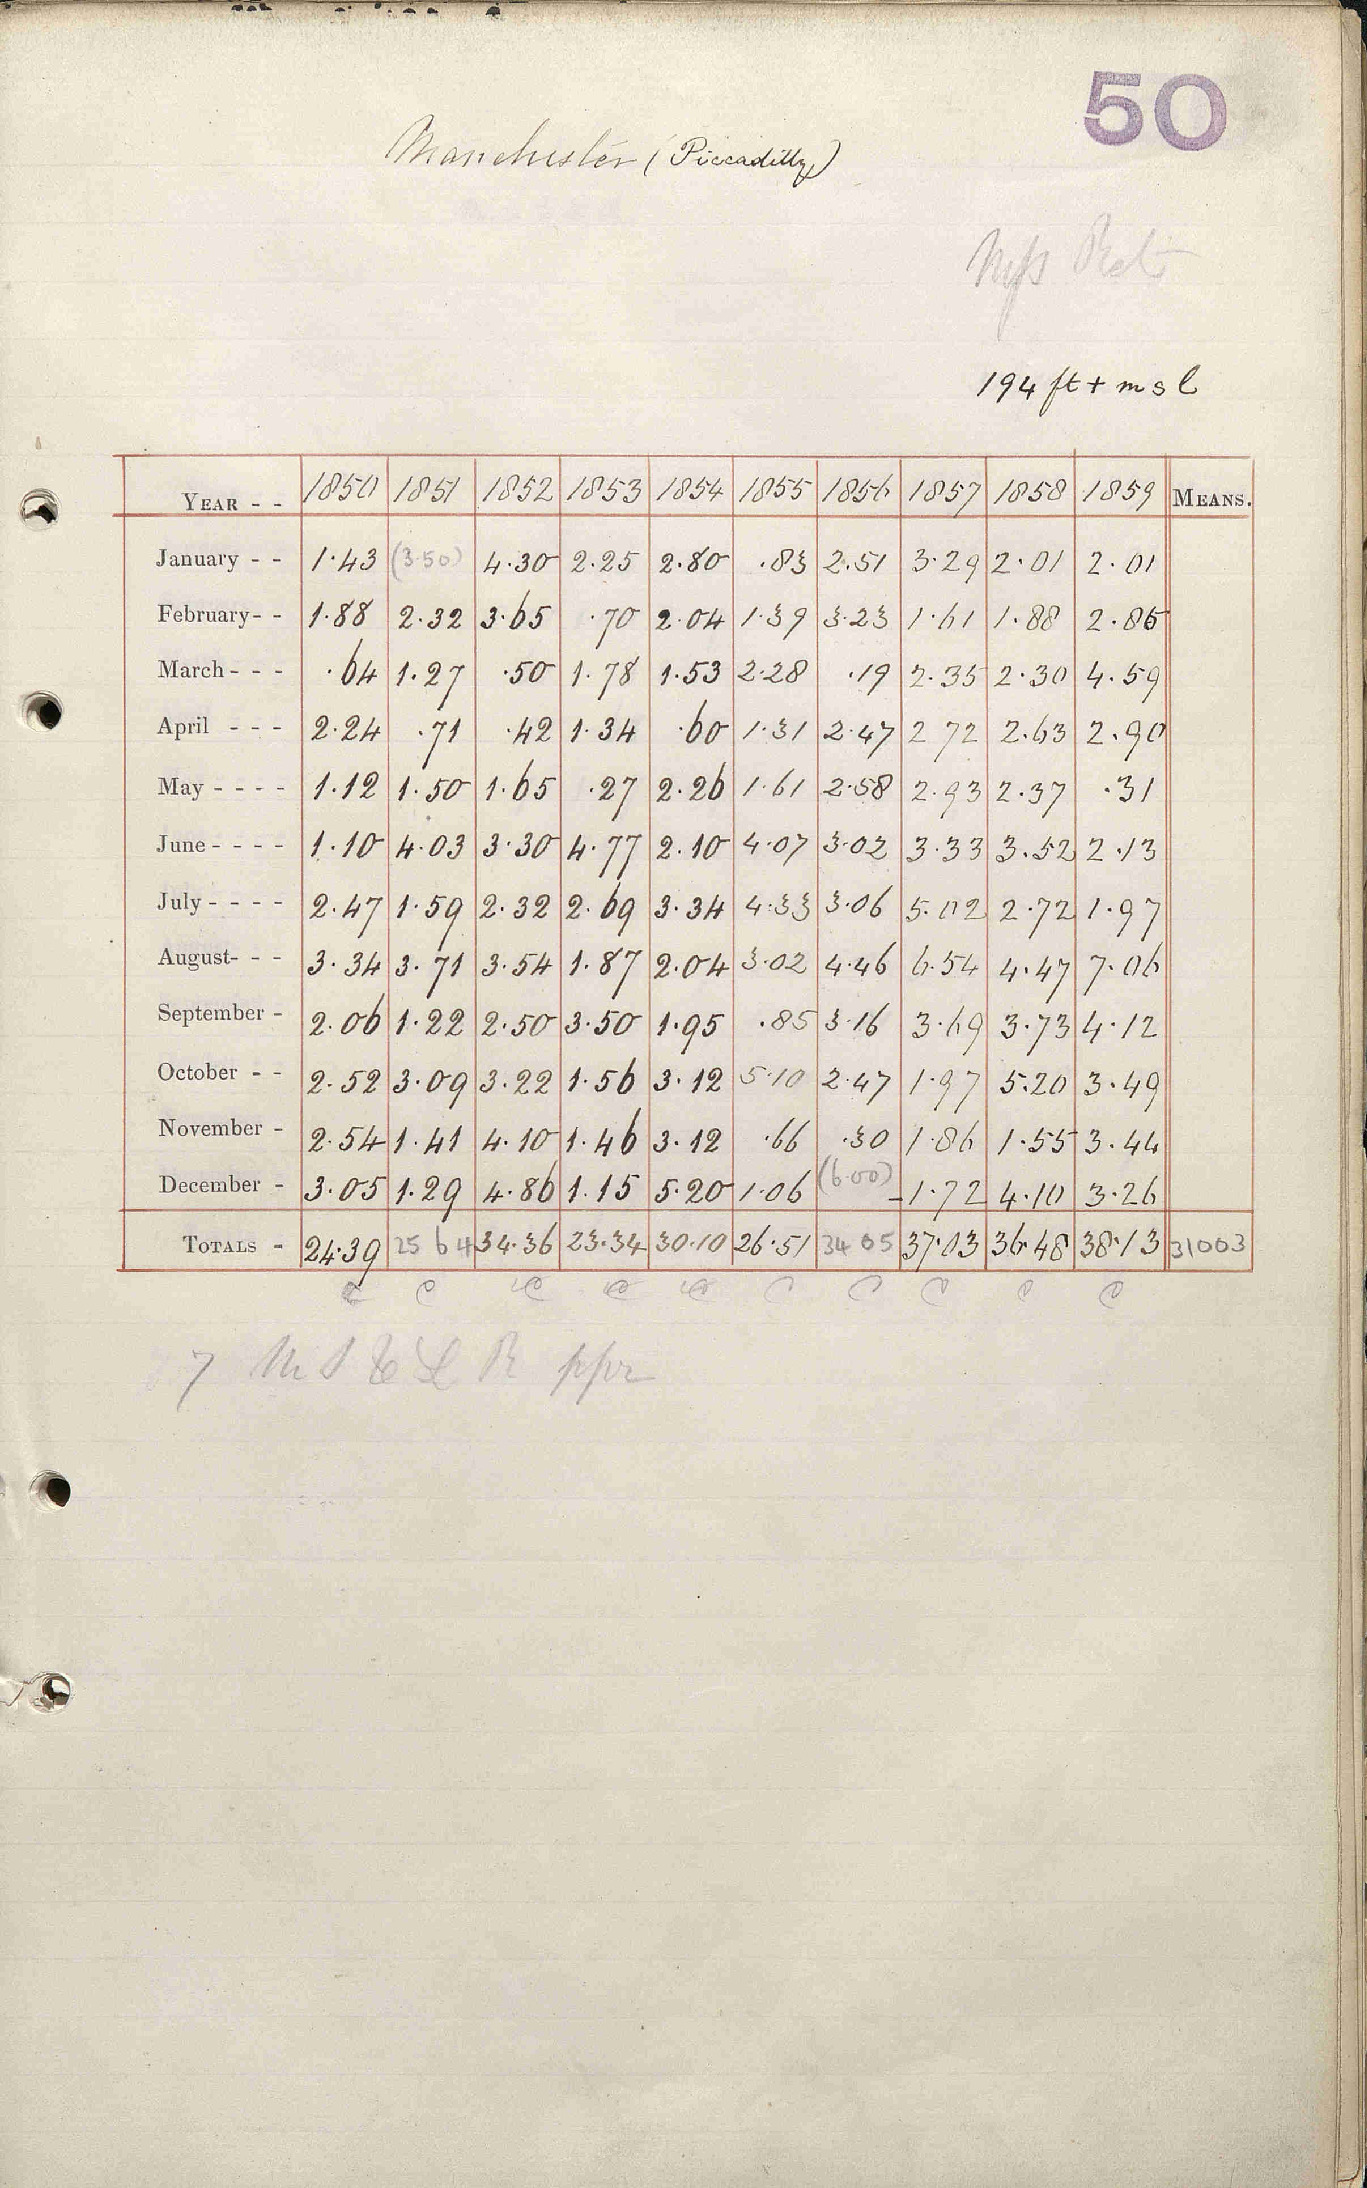 50
Manchester (Piccadilly)
194 ft + m s l
YEAR - - 1850 1851 1852 1853 1854 1855 1856 1857 1858 1859 MEANS.
January - - 1.43 (3.50) 4.30 2.25 2.80 .83 2.51 3.29 2.01 2.01
February - - 1.88 2.32 3.65 .70 2.04 1.39 3.23 1.61 1.88 2.85
March - - - .64 1.27 .50 1.78 1.53 2.28 .19 2.35 2.30 4.59
April - - - 2.24 .71 .42 1.34 .60 1.31 2.47 2 72 2.63 2.90
May - - - - 1.12 1.50 1.65 .27 2.26 1.61 2.58 2.93 2.37 .31
June - - - - 1.10 4.03 3.30 4.77 2.10 4.07 3.02 3.33 3.52 2.13
July - - - - 2.47 1.59 2.32 2.69 3.34 4.33 3.06 5.02 2.72 1.97
August - - - 3.34 3.71 3.54 1.87 2.04 3.02 4.46 6.54 4.47 7.06
September - 2.06 1.22 2.50 3.50 1.95 .85 3.16 3.69 3.73 4.12
October - - 2.52 3.09 3.22 1.56 3.12 5.10 2.47 1.97 5.20 3.49
November - 2.54 1.41 4.10 1.46 3.12 .66 .30 1.86 1.55 3.44
December - 3.05 1.29 4.86 1.15 5.20 1.06 (6.00) 1.72 4.10 3.26
TOTALS - 24.39 25 64 34.36 23.34 30.10 26.51 34 05 37.03 36.48 38.13 31003
C C C C C C C C C C